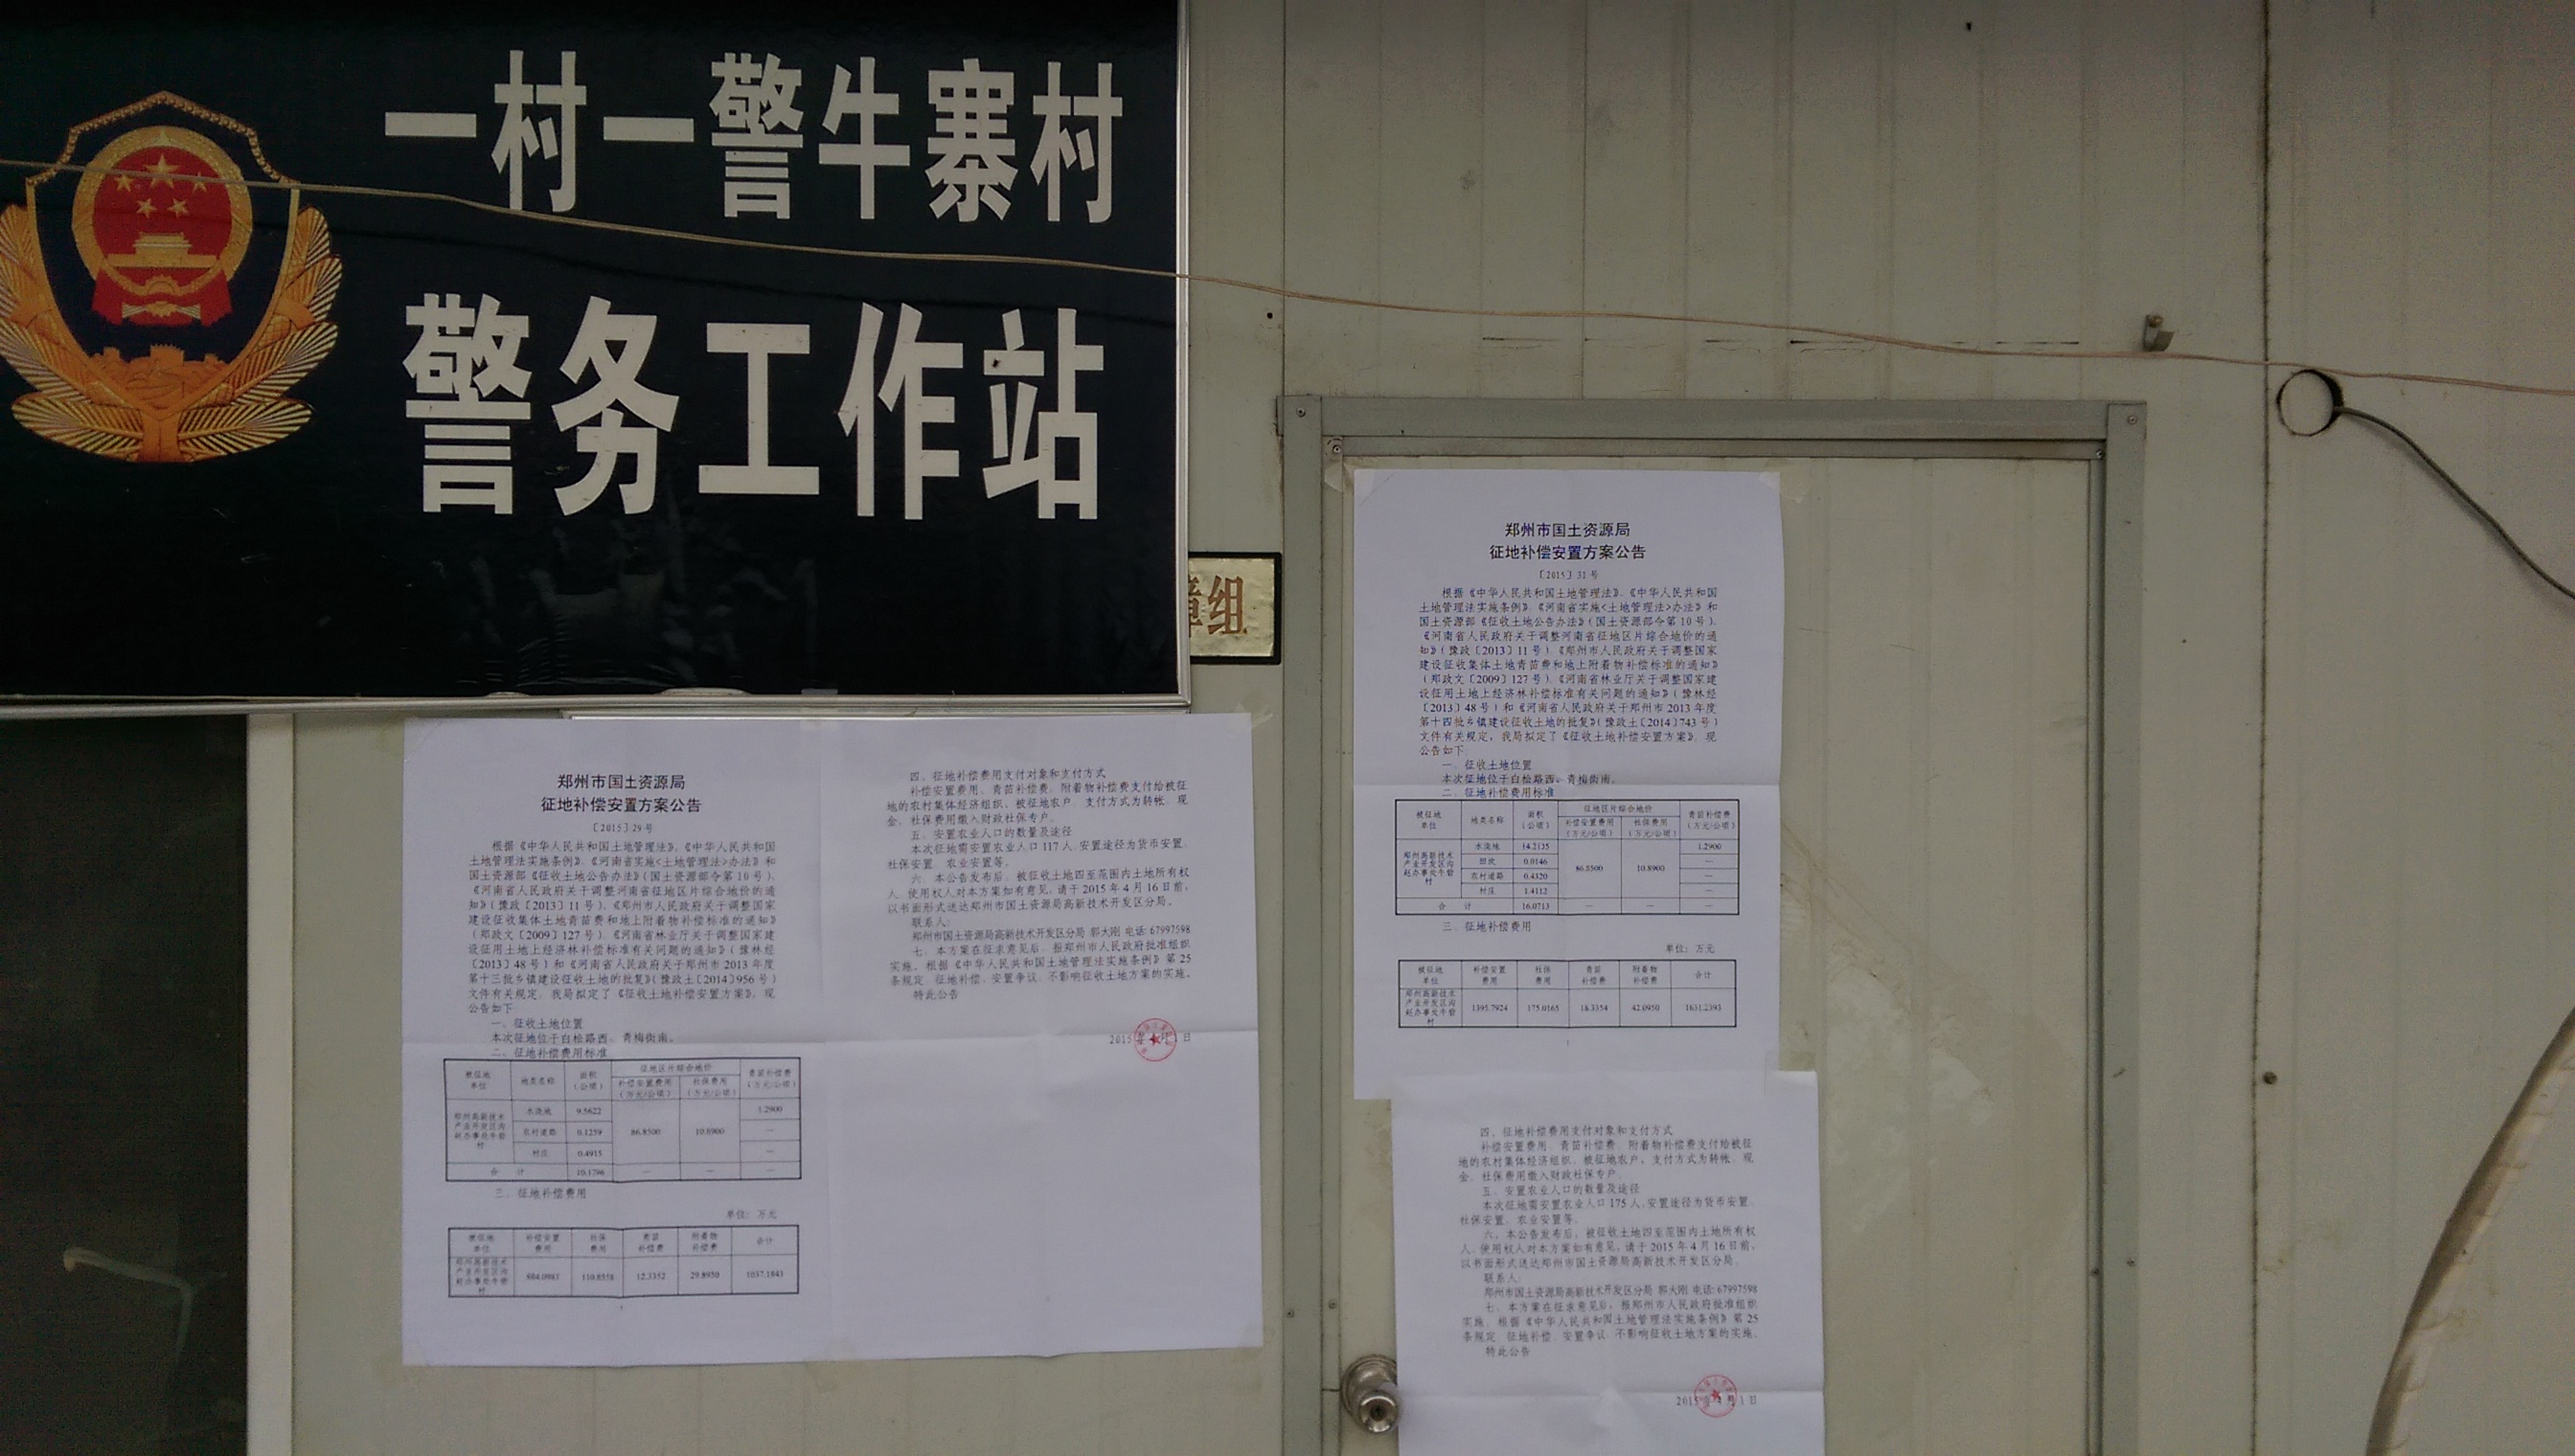 一村一警牛寨村
警务工作站
组
郑州市国土资源局
征地补偿安置方案公告
〔2015〕29号
根据《中华人民共和国土地管理法》、《中华人民共和国
土地管理法实施条例》、《河南省实施<土地管理法>办法》和
国土资源部《征收土地公告办法》(国土资源部令第10号)、
《河南省人民政府关于调整河南省征地区片综合地价的通
知》(豫政〔2013〕11号)、《郑州市人民政府关于调整国家
建设征收集体土地青苗费和地上附着物补偿标准的通知》
(郑政文〔2009〕127号)、《河南省林业厅关于调整国家建
设征用土地上经济林补偿标准有关问题的通知》(豫林经
〔2013〕48号)和《河南省人民政府关于郑州市2013年度
第十三批乡镇建设征收土地的批复》(豫政土〔2014〕956号)
文件有关规定,我局拟定了《征收土地补偿安置方案》,现
公告如下
一、征收土地位置
本次征地位于白松路西、青梅街南。
二、征地补偿费用标准
被征地单位 地类名称 面积(公顷) 征地区片综合地价 青苗补偿费(万元/公顷)
补偿安置费用(万元/公顷) 社保费用(万元/公顷)
郑州高新技术产业开发区沟赵办事处牛寨村 水浇地 9.5622 86.8500 10.8900 1.2900
农村道路 0.1259 —
村庄 0.4915 —
合 计 10.1796 — — —
三、征地补偿费用
单位:万元
被征地单位 补偿安置费用 社保费用 青苗补偿费 附着物补偿费 合计
郑州高新技术产业开发区沟赵办事处牛寨村 884.0983 110.8558 12.3352 29.8950 1037.1843
四、征地补偿费用支付对象和支付方式
补偿安置费用、青苗补偿费、附着物补偿费支付给被征
地的农村集体经济组织、被征地农户,支付方式为转帐、现
金,社保费用缴入财政社保专户。
五、安置农业人口的数量及途径
本次征地需安置农业人口117人,安置途径为货币安置、
社保安置、农业安置等。
六、本公告发布后,被征收土地四至范围内土地所有权
人、使用权人对本方案如有意见,请于2015年4月16日前,
以书面形式送达郑州市国土资源局高新技术开发区分局。
联系人:
郑州市国土资源局高新技术开发区分局 郭大刚 电话:67997598
七、本方案在征求意见后,报郑州市人民政府批准组织
实施。根据《中华人民共和国土地管理法实施条例》第25
条规定,征地补偿、安置争议,不影响征收土地方案的实施。
特此公告
2015年 月1日
郑州市国土资源局
征地补偿安置方案公告
〔2015〕31号
根据《中华人民共和国土地管理法》、《中华人民共和国
土地管理法实施条例》、《河南省实施<土地管理法>办法》和
国土资源部《征收土地公告办法》(国土资源部令第10号)、
《河南省人民政府关于调整河南省征地区片综合地价的通
知》(豫政〔2013〕11号)《郑州市人民政府关于调整国家
建设征收集体土地青苗费和地上附着物补偿标准的通知》
(郑政文〔2009〕127号)、《河南省林业厅关于调整国家建
设征用土地上经济林补偿标准有关问题的通知》(豫林经
〔2013〕48号)和《河南省人民政府关于郑州市2013年度
第十四批乡镇建设征收土地的批复》(豫政土〔2014〕743号)
文件有关规定,我局拟定了《征收土地补偿安置方案》,现
公告如下
一、征收土地位置
本次征地位于白松路西、青梅街南。
二、征地补偿费用标准
被征地单位 地类名称 面积(公顷) 征地区片综合地价 青苗补偿费(万元/公顷)
补偿安置费用(万元/公顷) 社保费用(万元/公顷)
郑州高新技术产业开发区沟赵办事处牛寨村 水浇地 14.2135 86.8500 10.8900 1.2900
田坎 0.0146 —
农村道路 0.4320 —
村庄 1.4112 —
合 计 16.0713 — — —
三、征地补偿费用
单位:万元
被征地单位 补偿安置费用 社保费用 青苗补偿费 附着物补偿费 合计
郑州高新技术产业开发区沟赵办事处牛寨村 1395.7924 175.0165 18.3354 42.0950 1631.2393
1
四、征地补偿费用支付对象和支付方式
补偿安置费用、青苗补偿费、附着物补偿费支付给被征
地的农村集体经济组织、被征地农户,支付方式为转帐、现
金,社保费用缴入财政社保专户。
五、安置农业人口的数量及途径
本次征地需安置农业人口175人,安置途径为货币安置、
社保安置、农业安置等。
六、本公告发布后,被征收土地四至范围内土地所有权
人、使用权人对本方案如有意见,请于2015年4月16日前,
以书面形式送达郑州市国土资源局高新技术开发区分局。
联系人:
郑州市国土资源局高新技术开发区分局 郭大刚 电话:67997598
七、本方案在征求意见后,报郑州市人民政府批准组织
实施。根据《中华人民共和国土地管理法实施条例》第25
条规定,征地补偿、安置争议,不影响征收土地方案的实施。
特此公告
2015年4月1日